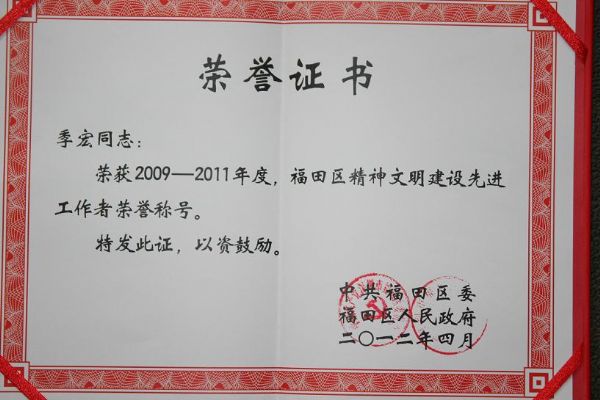 荣誉证书
季宏同志：
荣获2009—2011年度，福田区精神文明建设先进
工作者荣誉称号。
特发此证，以资鼓励。
中共福田区委
福田区人民政府
二〇一二年四月